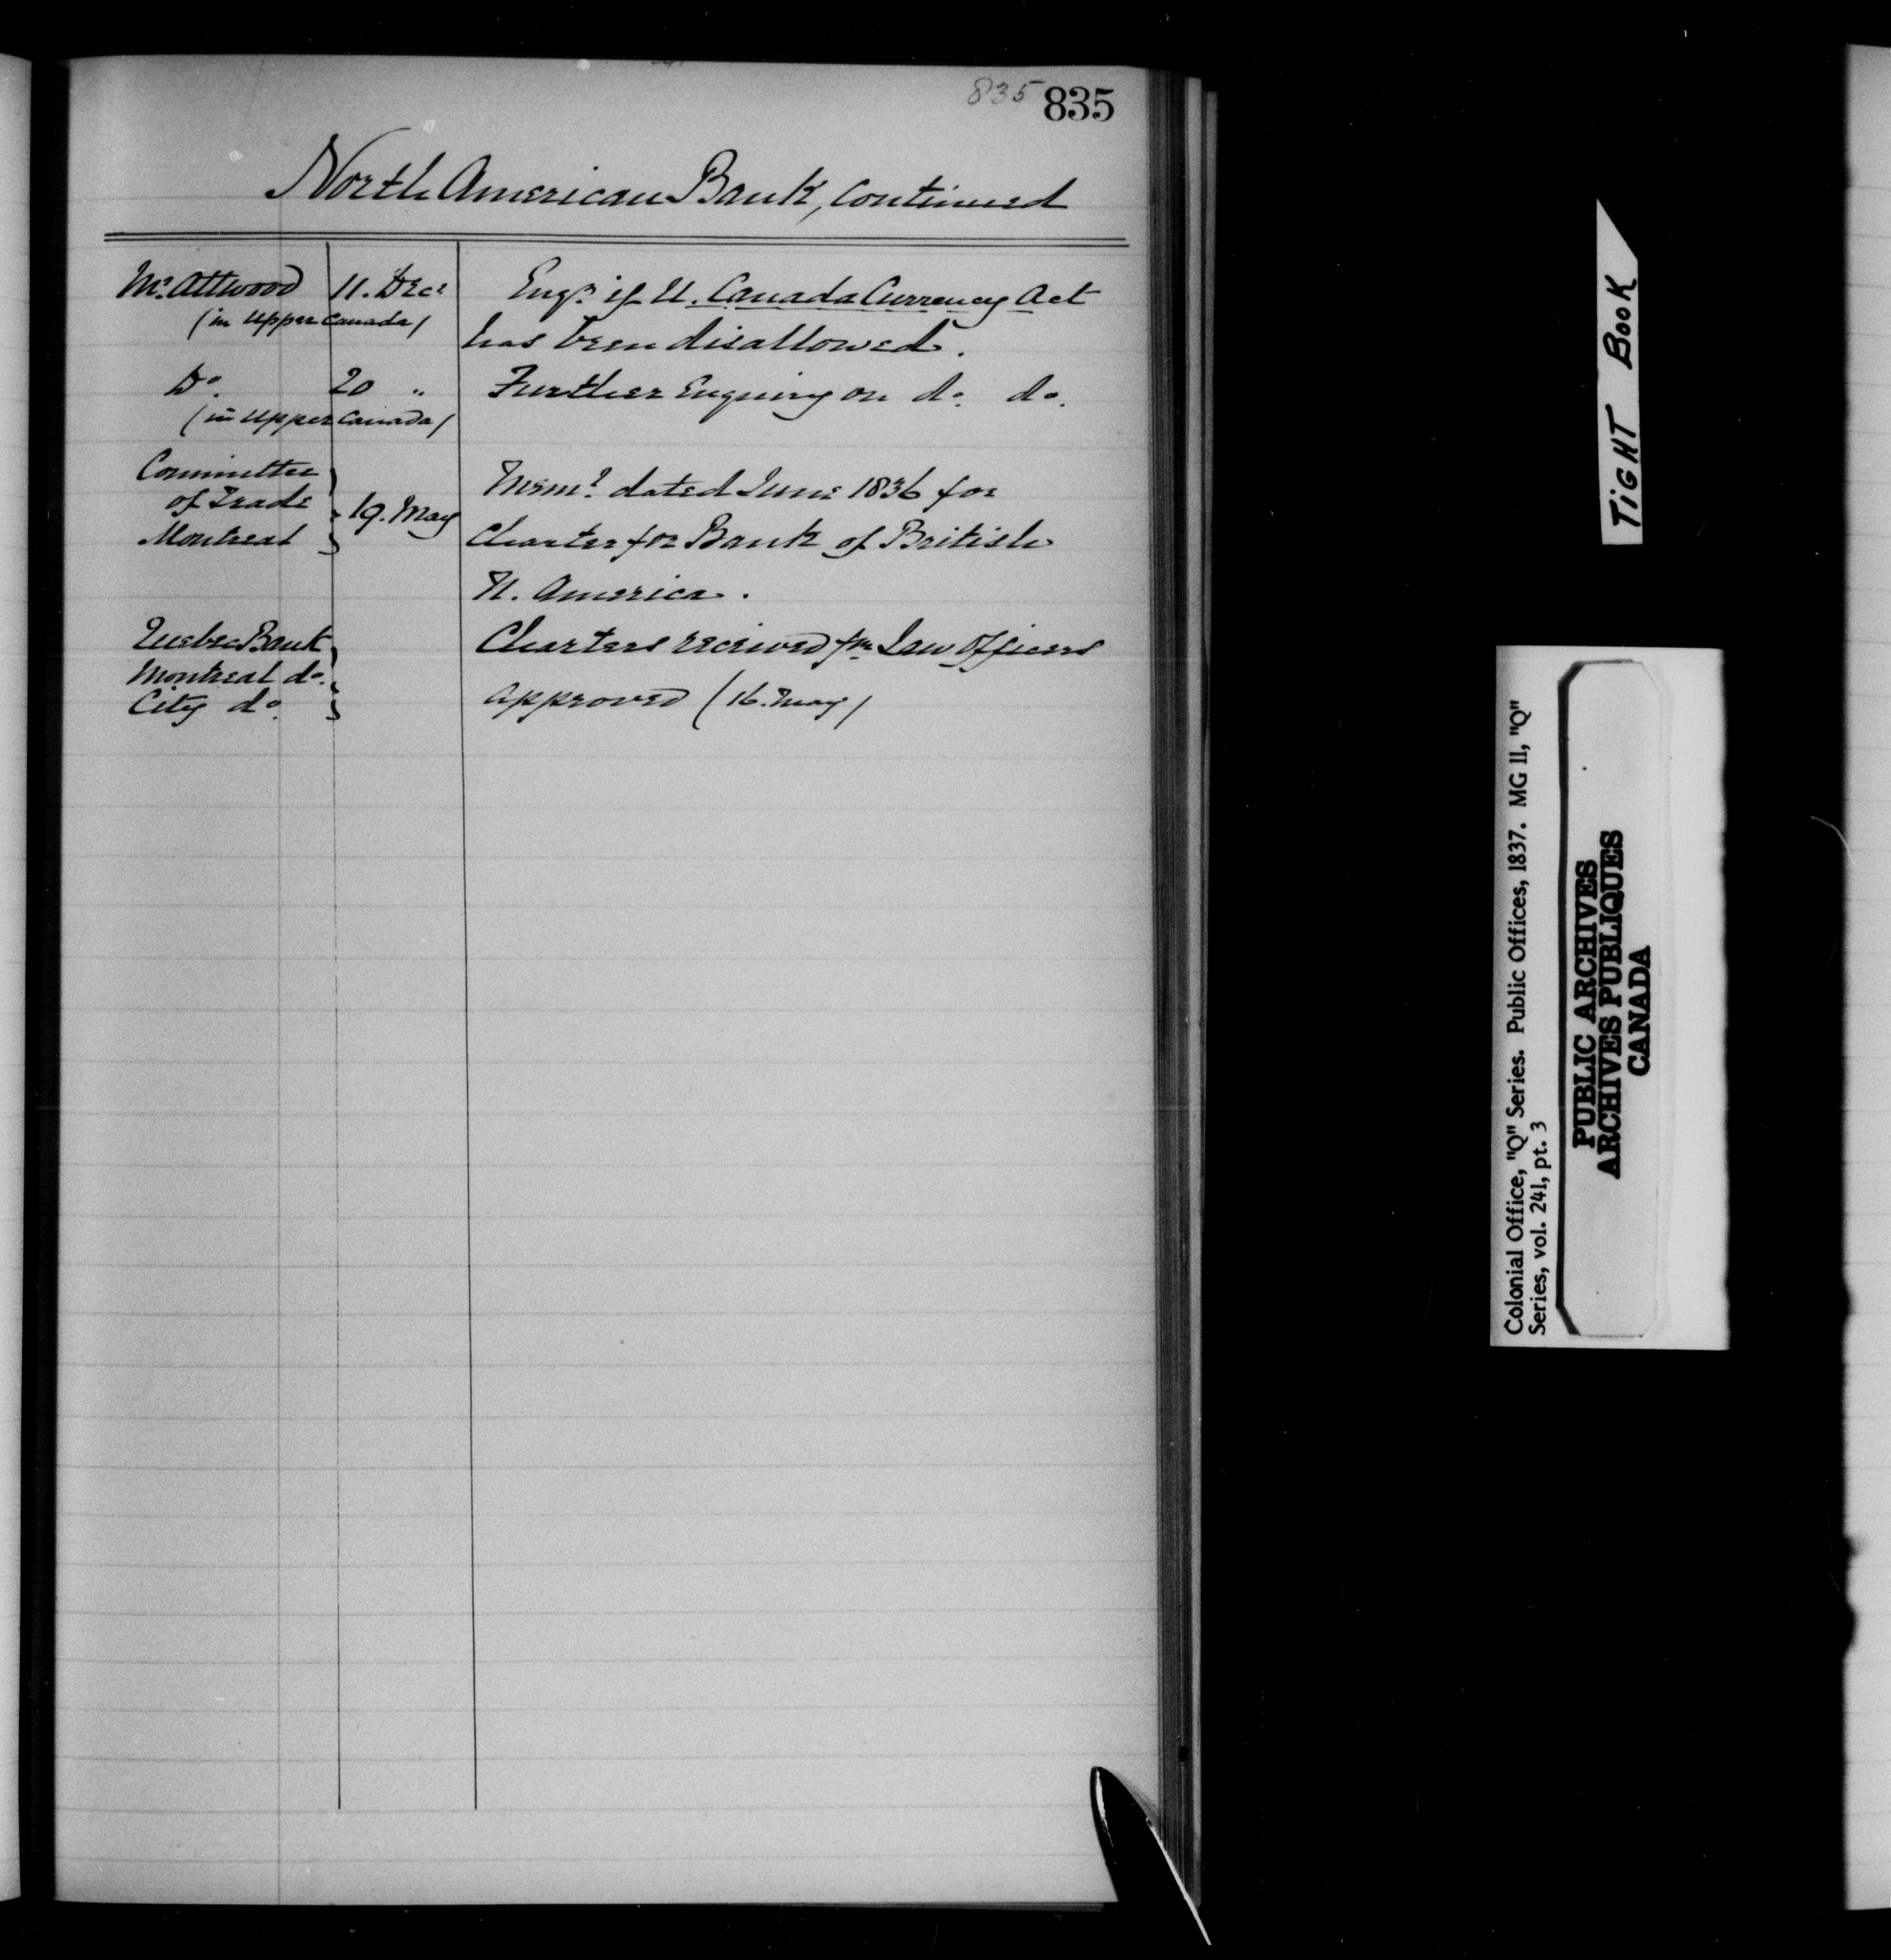 835 835
North American Bank, Continued
Mr. Attwood 11. Decr Enqs. if U. Canada Currency Act
(in Upper Canada) has been disallowed.
Do. 20 " Further Enquiry on do. do.
(in Upper Canada)
Committee
of Trade
Montreal
19. May
Meml. dated June 1836 for
Charter for Bank of British
N. America.
Quebec Bank
Montreal do.
City do.
Charters received fm Law Officers
approved (16. May)
TIGHT BOOK
Colonial Office, "Q" Series. Public Offices, 1837. MG 11, "Q"
Series, vol. 241, pt. 3
PUBLIC ARCHIVES
ARCHIVES PUBLIQUES
CANADA